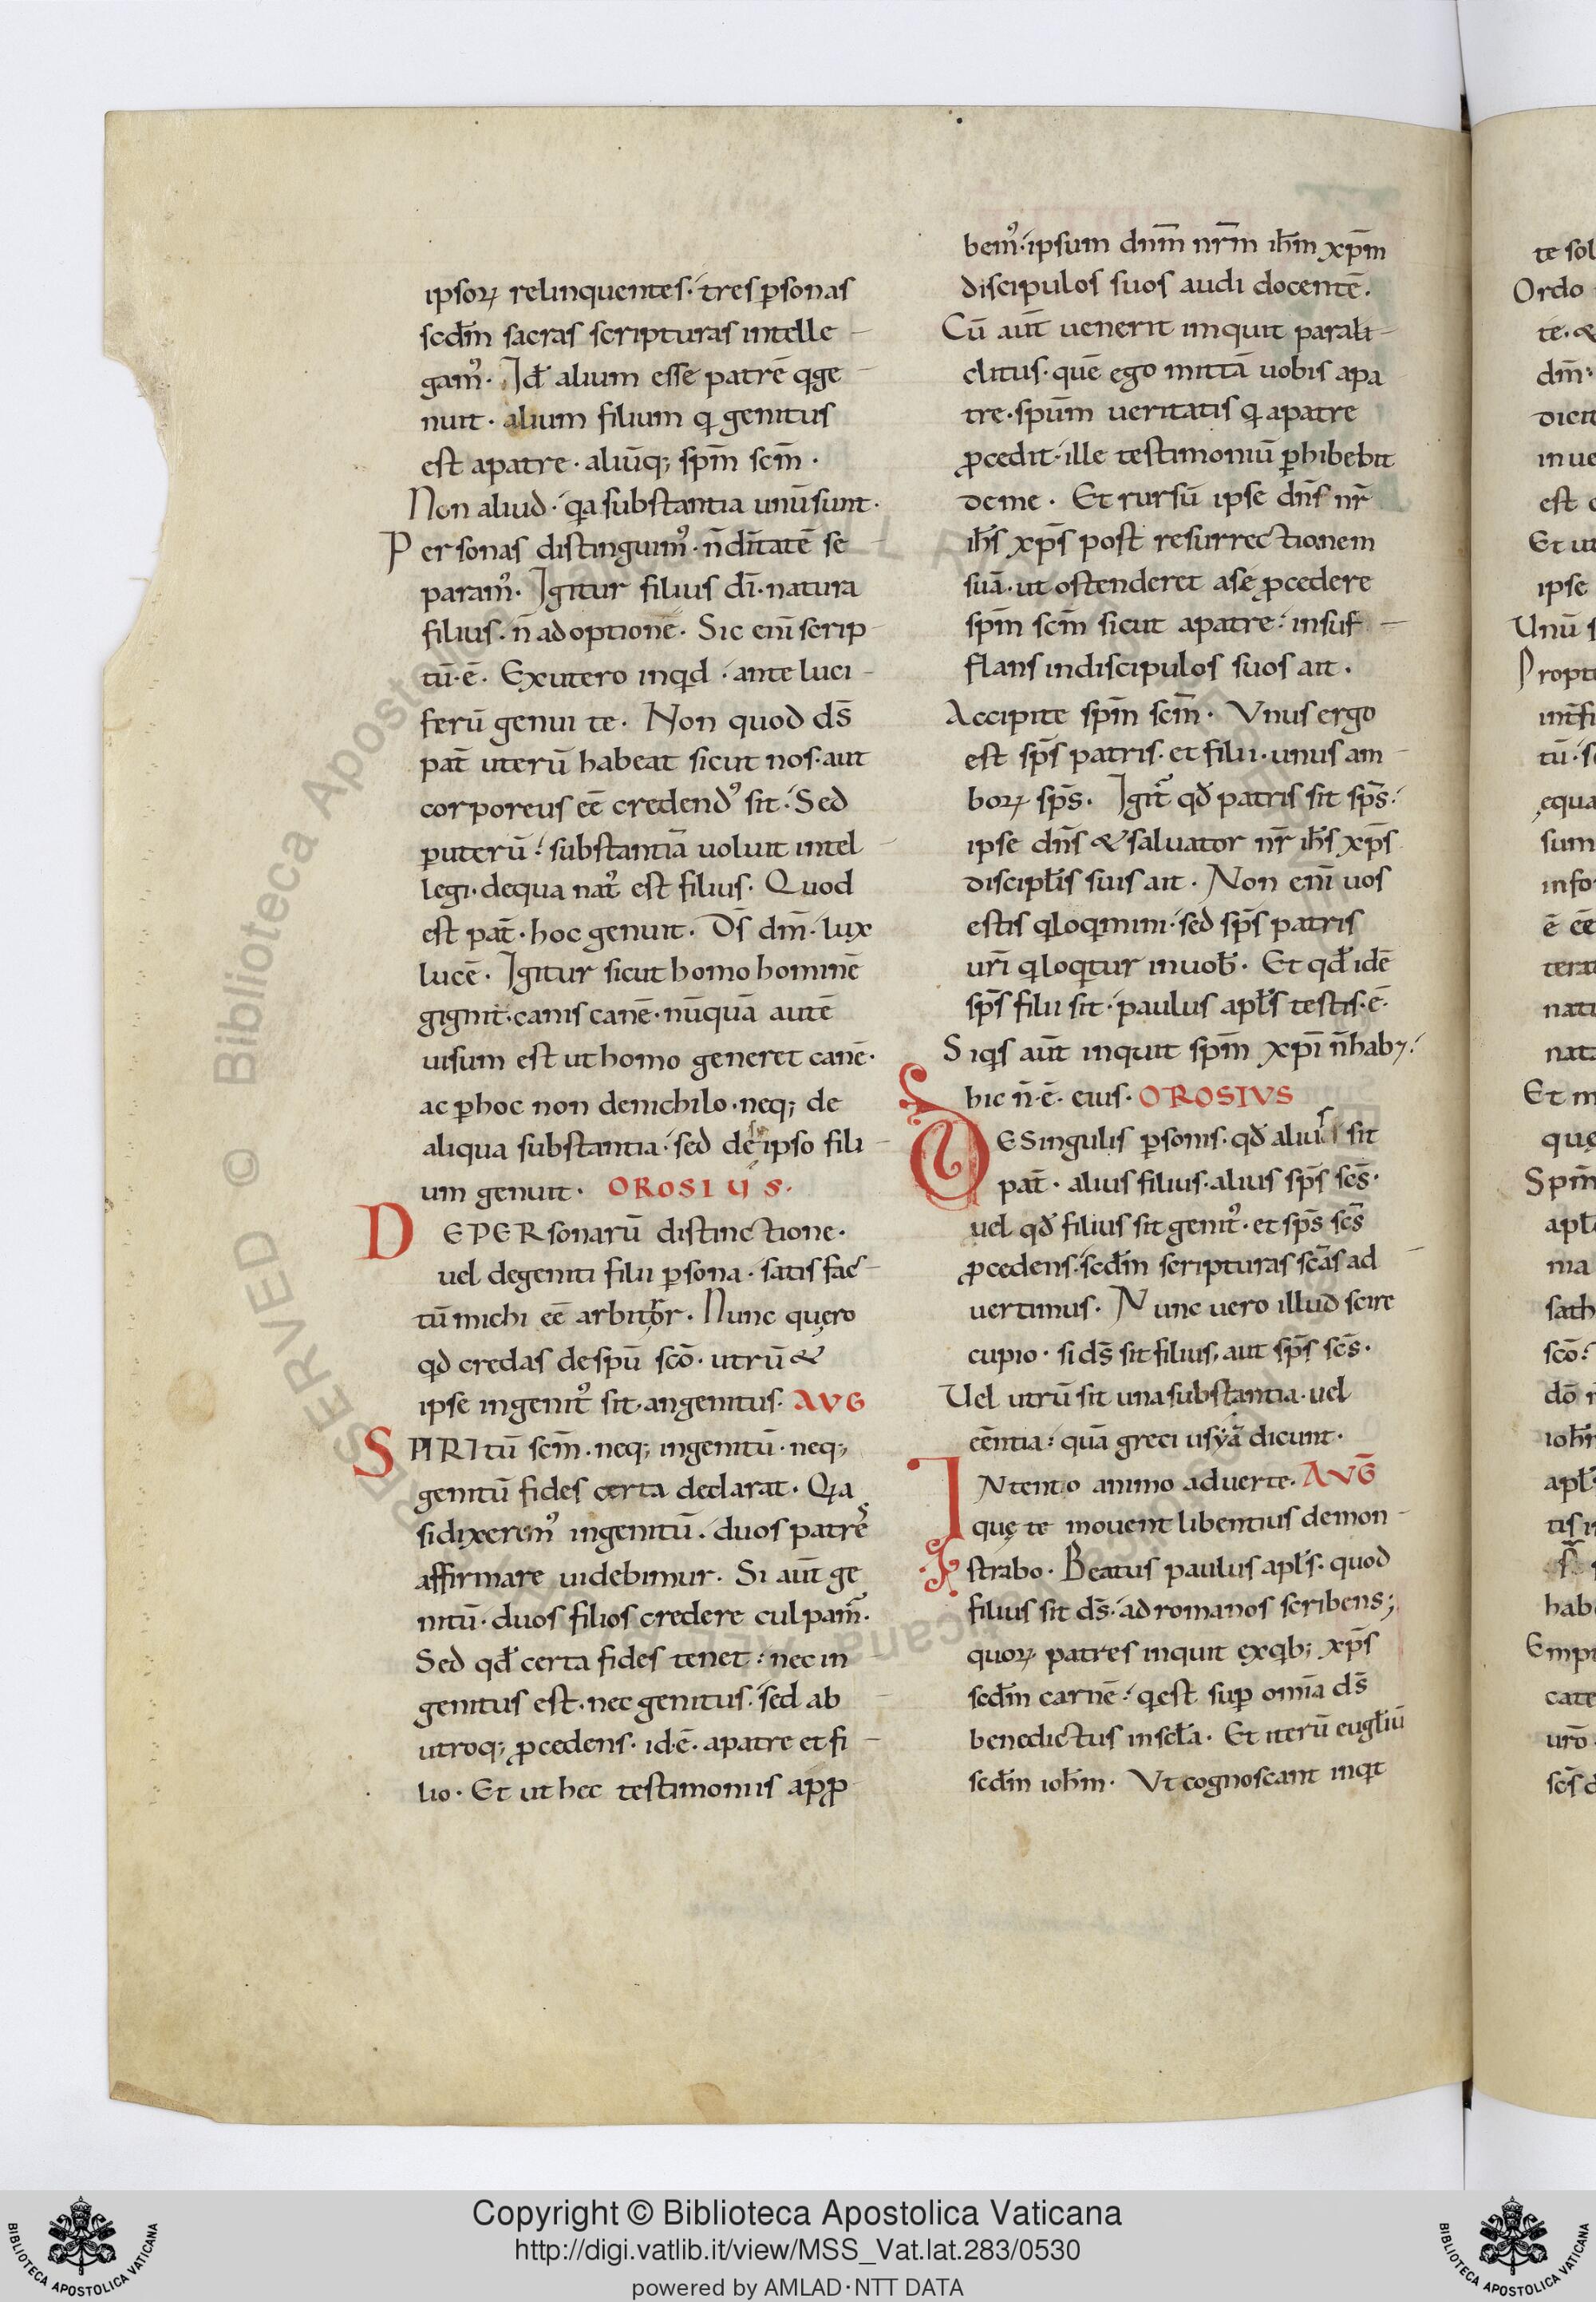 ipsoꝝ relinquentes· tres ꝑsonas
scd̄m sacras scripturas intelle
gam᾽· Id̄ alium esse patrē q ge
nuit· alium filium q genitus
est apatre· aliūq; sp̄m sc̄m·
Non aliud· q̇a substantia unū sunt·
Personas distinguim᾽· n̄ dītatē se
param᾽· Igitur filius dī· natura
filius· n̄ adoptionē· Sic enī scrip
tū· ē· Ex utero inqd· ante luci
ferū genui te· Non quod ds̄
pat̄ uterū habeat sicut nos· aut
corporeus eē credend᾽ sit· Sed
ꝑ uterū· substantiā uoluit intel
legi· de qua nat᾽ est filius· Quod
est pat̄· hoc genuit· Ds̄ dm̄· lux
lucē· Igitur sicut homo hominē
gignit· canis canē· nūquā autē
uisum est ut homo generet canē·
ac ꝑ hoc non denichilo· neq; de
aliqua substantia· sed de se ipso fili
um genuit· OROSIUS·
DE PERsonarū distinctione·
uel degeniti filii ꝑsona· satis fac
tū michi eē arbitror· Nunc quęro
qd credas despū scō· utrū &
ipse ingenit᾽ sit· an genitus· AVG
SPIRItū sc̄m· neq; ingenitū· neq;
genitū fides certa declarat· Q̇a
si dixerem᾽ ingenitū· duos patres
affirmare uidebimur· Si aut̄ ge
nitū· duos filios credere culpam̄·
Sed qd̄ certa fides tenet· nec in
genitus est· nec genitus· sed ab
utroq; ꝓcedens· id· ē· apatre et fi
lio· Et ut hec testimoniis apꝓ
bem᾽· ipsum dn̄m nr̄m ih̄m xp̄m
discipulos suos audi docentē·
Cū aut̄ uenerit inquit parali
clitus· quē ego mittā uobis apa
tre· spūm ueritatis q apatre
ꝓcedit· ille testimoniū ꝑhibebit
deme· Et rursū ipse dn̄s nr̄
ih̄s xp̄s post resurrectionem
suā· ut ostenderet ase ꝓcedere
sp̄m sc̄m sicut apatre· insuf
flans indiscipulos suos ait·
Accipite sp̄m sc̄m· Vnus ergo
est sp̄s patris· et filii· unus am
boꝝ sp̄s· Igit̄ qd̄ patris sit sp̄s·
ipse dn̄s & saluator nr̄ ih̄s xp̄s
discipłis suis ait· Non enī uos
estis q loqmini· sed sp̄s patris
urī q loqtur inuob̄· Et qd̄ idē
sp̄s filii sit· paulus apłs testis· ē·
Siqs aut̄ inquit sp̄m xp̄i n̄ hab;·
hic n̄· ē· eius· OROSIVS
DE Singulis ꝑsonis· qd̄ alius sit
pat̄· alius filius· alius sp̄s sc̄s·
uel qd̄ filius sit genit᾽· et sp̄s sc̄s
ꝓcedens· scd̄m scripturas sc̄as ad
uertimus· Nunc uero illud scire
cupio· si ds̄ sit filius, aut sp̄s sc̄s·
Uel utrū sit una substantia· uel
eēntia· quā greci usyā dicunt·
INtento animo aduerte· AVḠ
quę te mouent libentius demon
strabo· Beatus paulus apłs· quod
filius sit ds̄· ad romanos scribens;
quoꝝ patres inquit exqb; xp̄s
scd̄m carnē· q est suꝑ omīa ds̄
benedictus in scła· Et iterū eugłiū
scd̄m ioh̄m· Vt cognoscant inqt
Copyright © Biblioteca Apostolica Vaticana
http://digi.vatlib.it/view/MSS_Vat.lat.283/0530
powered by AMLAD·NTT DATA